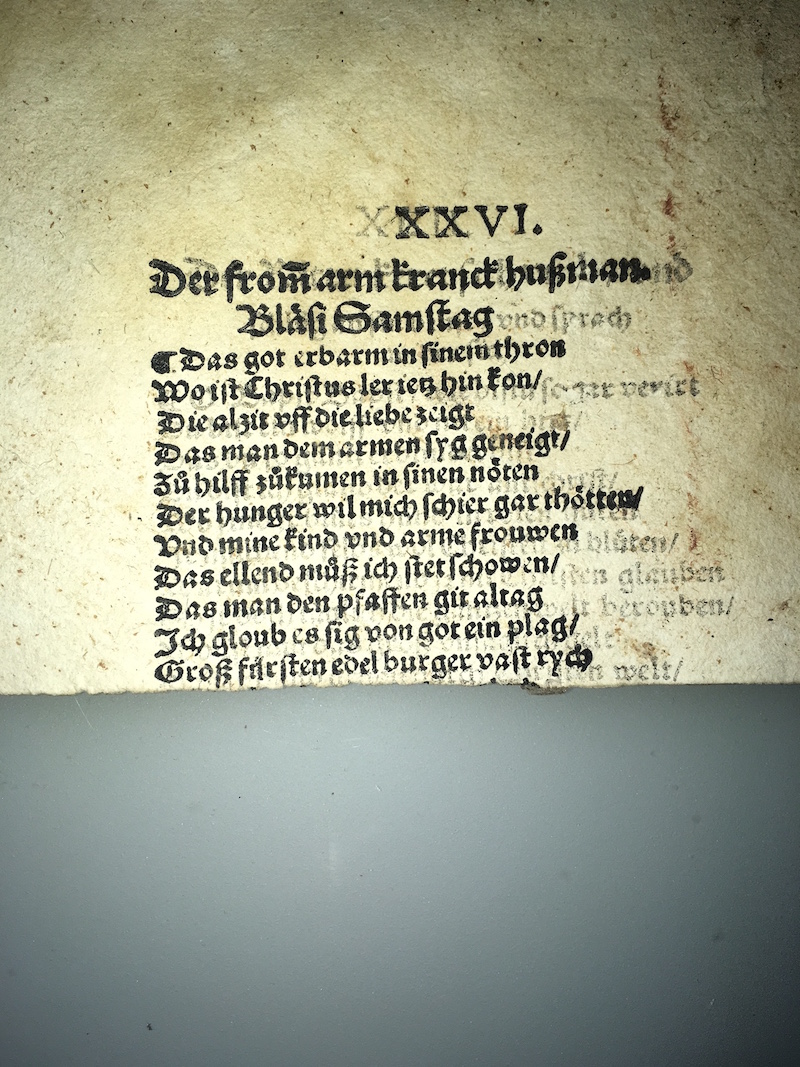 XXXVI.
Der from̄ arm kranck hußman.
Bläsi Samstag
¶ Das got erbarm in sinem thron
Wo ist Christus ler ietz hin kon/
Die alzit vff die liebe zeigt
Das man dem armen syg geneigt/
Zů hilff zůkumen in sinen nöten
Der hunger wil mich schier gar thötten/
Vnd mine kind vnd arme frouwen
Das ellend můß ich stet schowen/
Das man den pfaffen git altag
Ich gloub es sig von got ein plag/
Groß fürsten edel burger vast rych